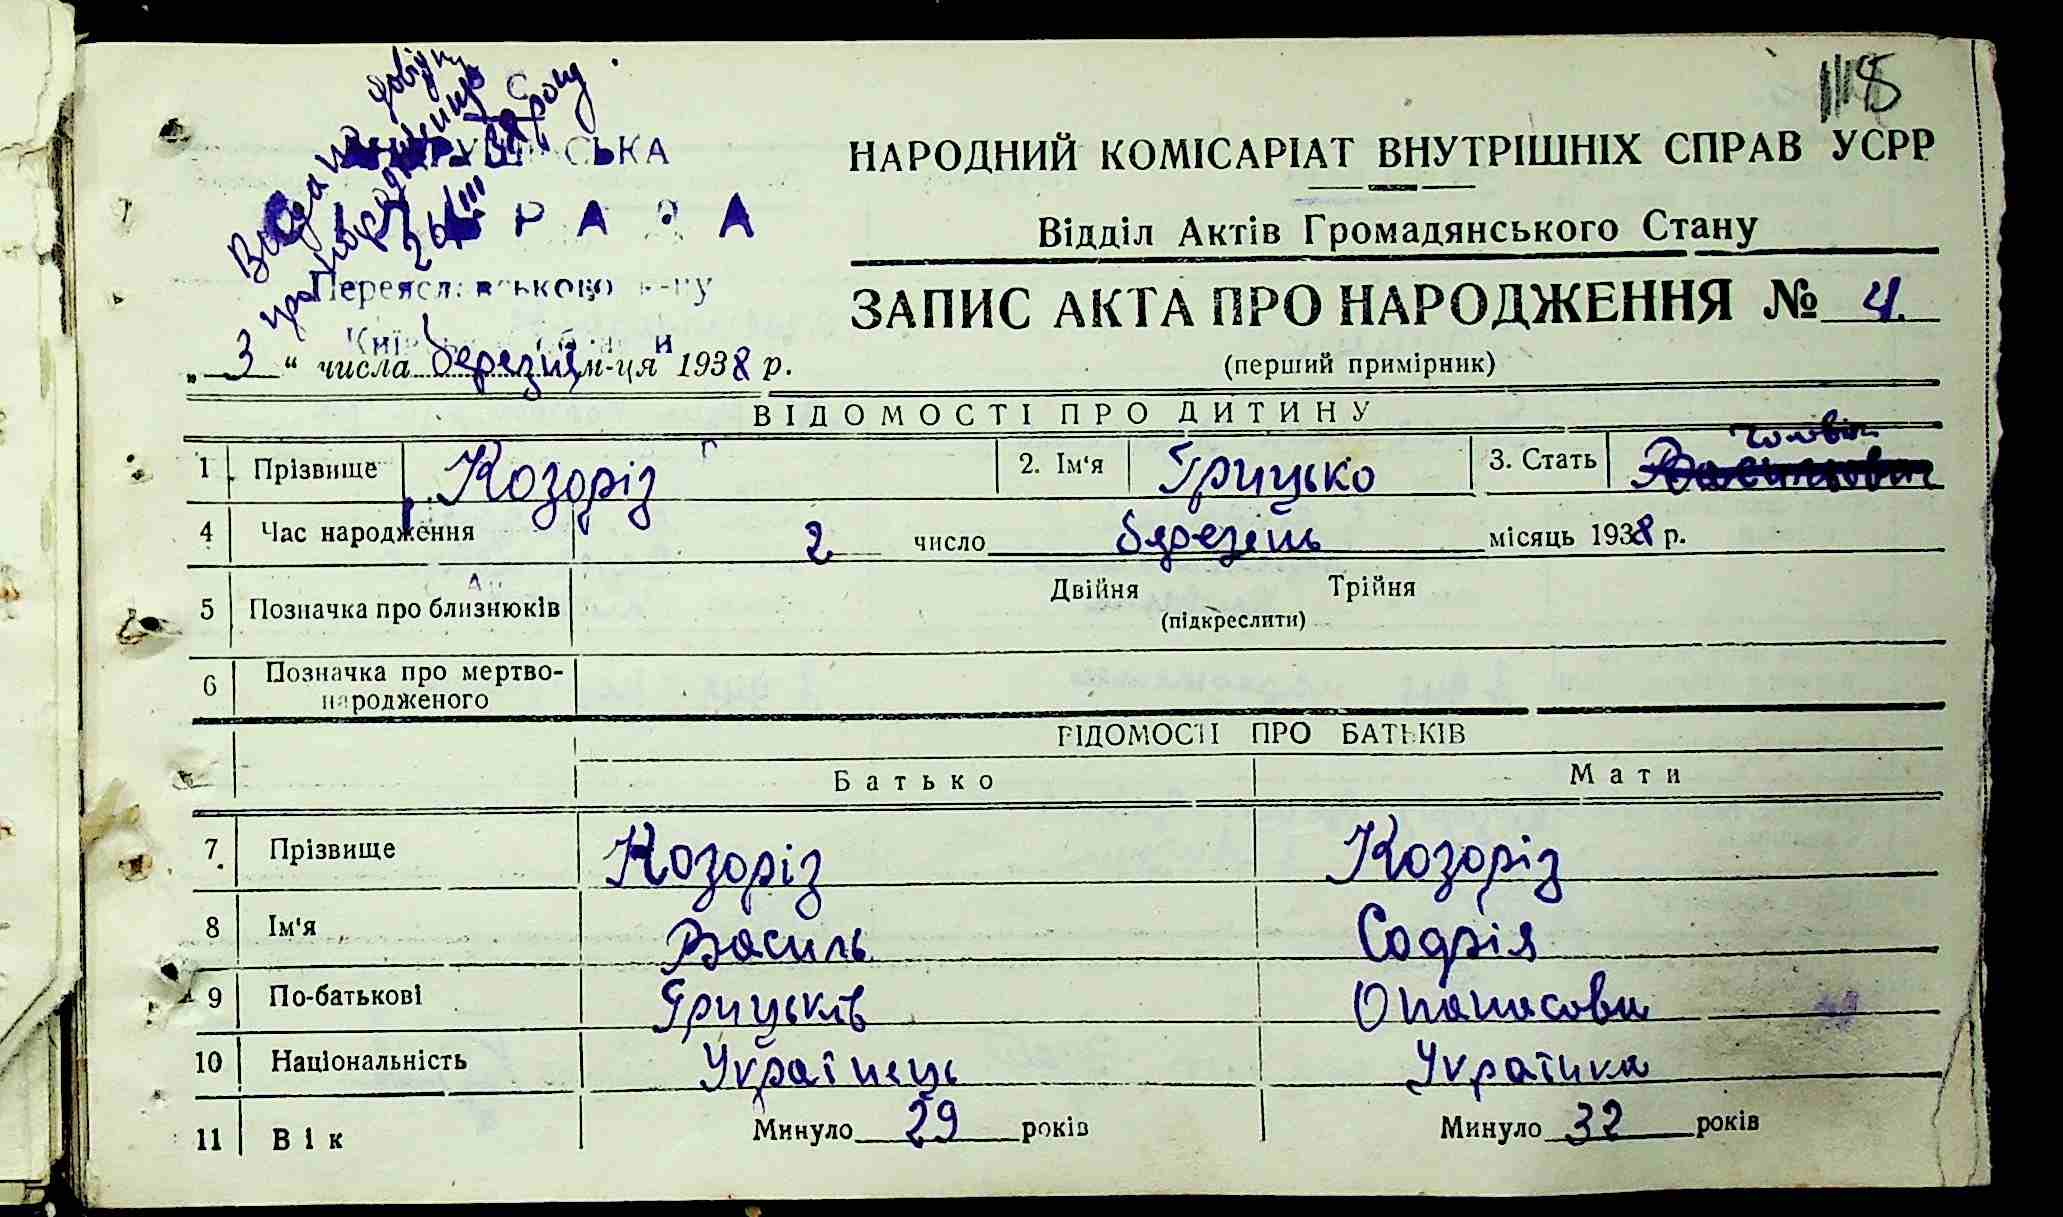 118
НАРОДНИЙ КОМІСАРІАТ ВНУТРІШНІХ СПРАВ УСРР
Відділ Актів Громадянського Стану
СЬКА
РАДА
Переяславського р-ну
Київської області
ЗАПИС АКТА ПРО НАРОДЖЕННЯ № 4
„ 3 “ числа березня м-ця 1938 р.
(перший примірник)
ВІДОМОСТІ ПРО ДИТИНУ
1 Прізвище Козоріз 2. Ім'я Грицько 3. Стать чоловіч
4 Час народження 2 число березень місяць 1938 р.
5 Позначка про близнюків Двійня Трійня
(підкреслити)
6 Позначка про мертво-
народженого
ВІДОМОСТІ ПРО БАТЬКІВ
Батько Мати
7 Прізвище Козоріз Козоріз
8 Ім'я Василь Софія
9 По-батькові Грицьків Опанасовн
10 Національність Українець Українка
11 Вік Минуло 29 років Минуло 32 років